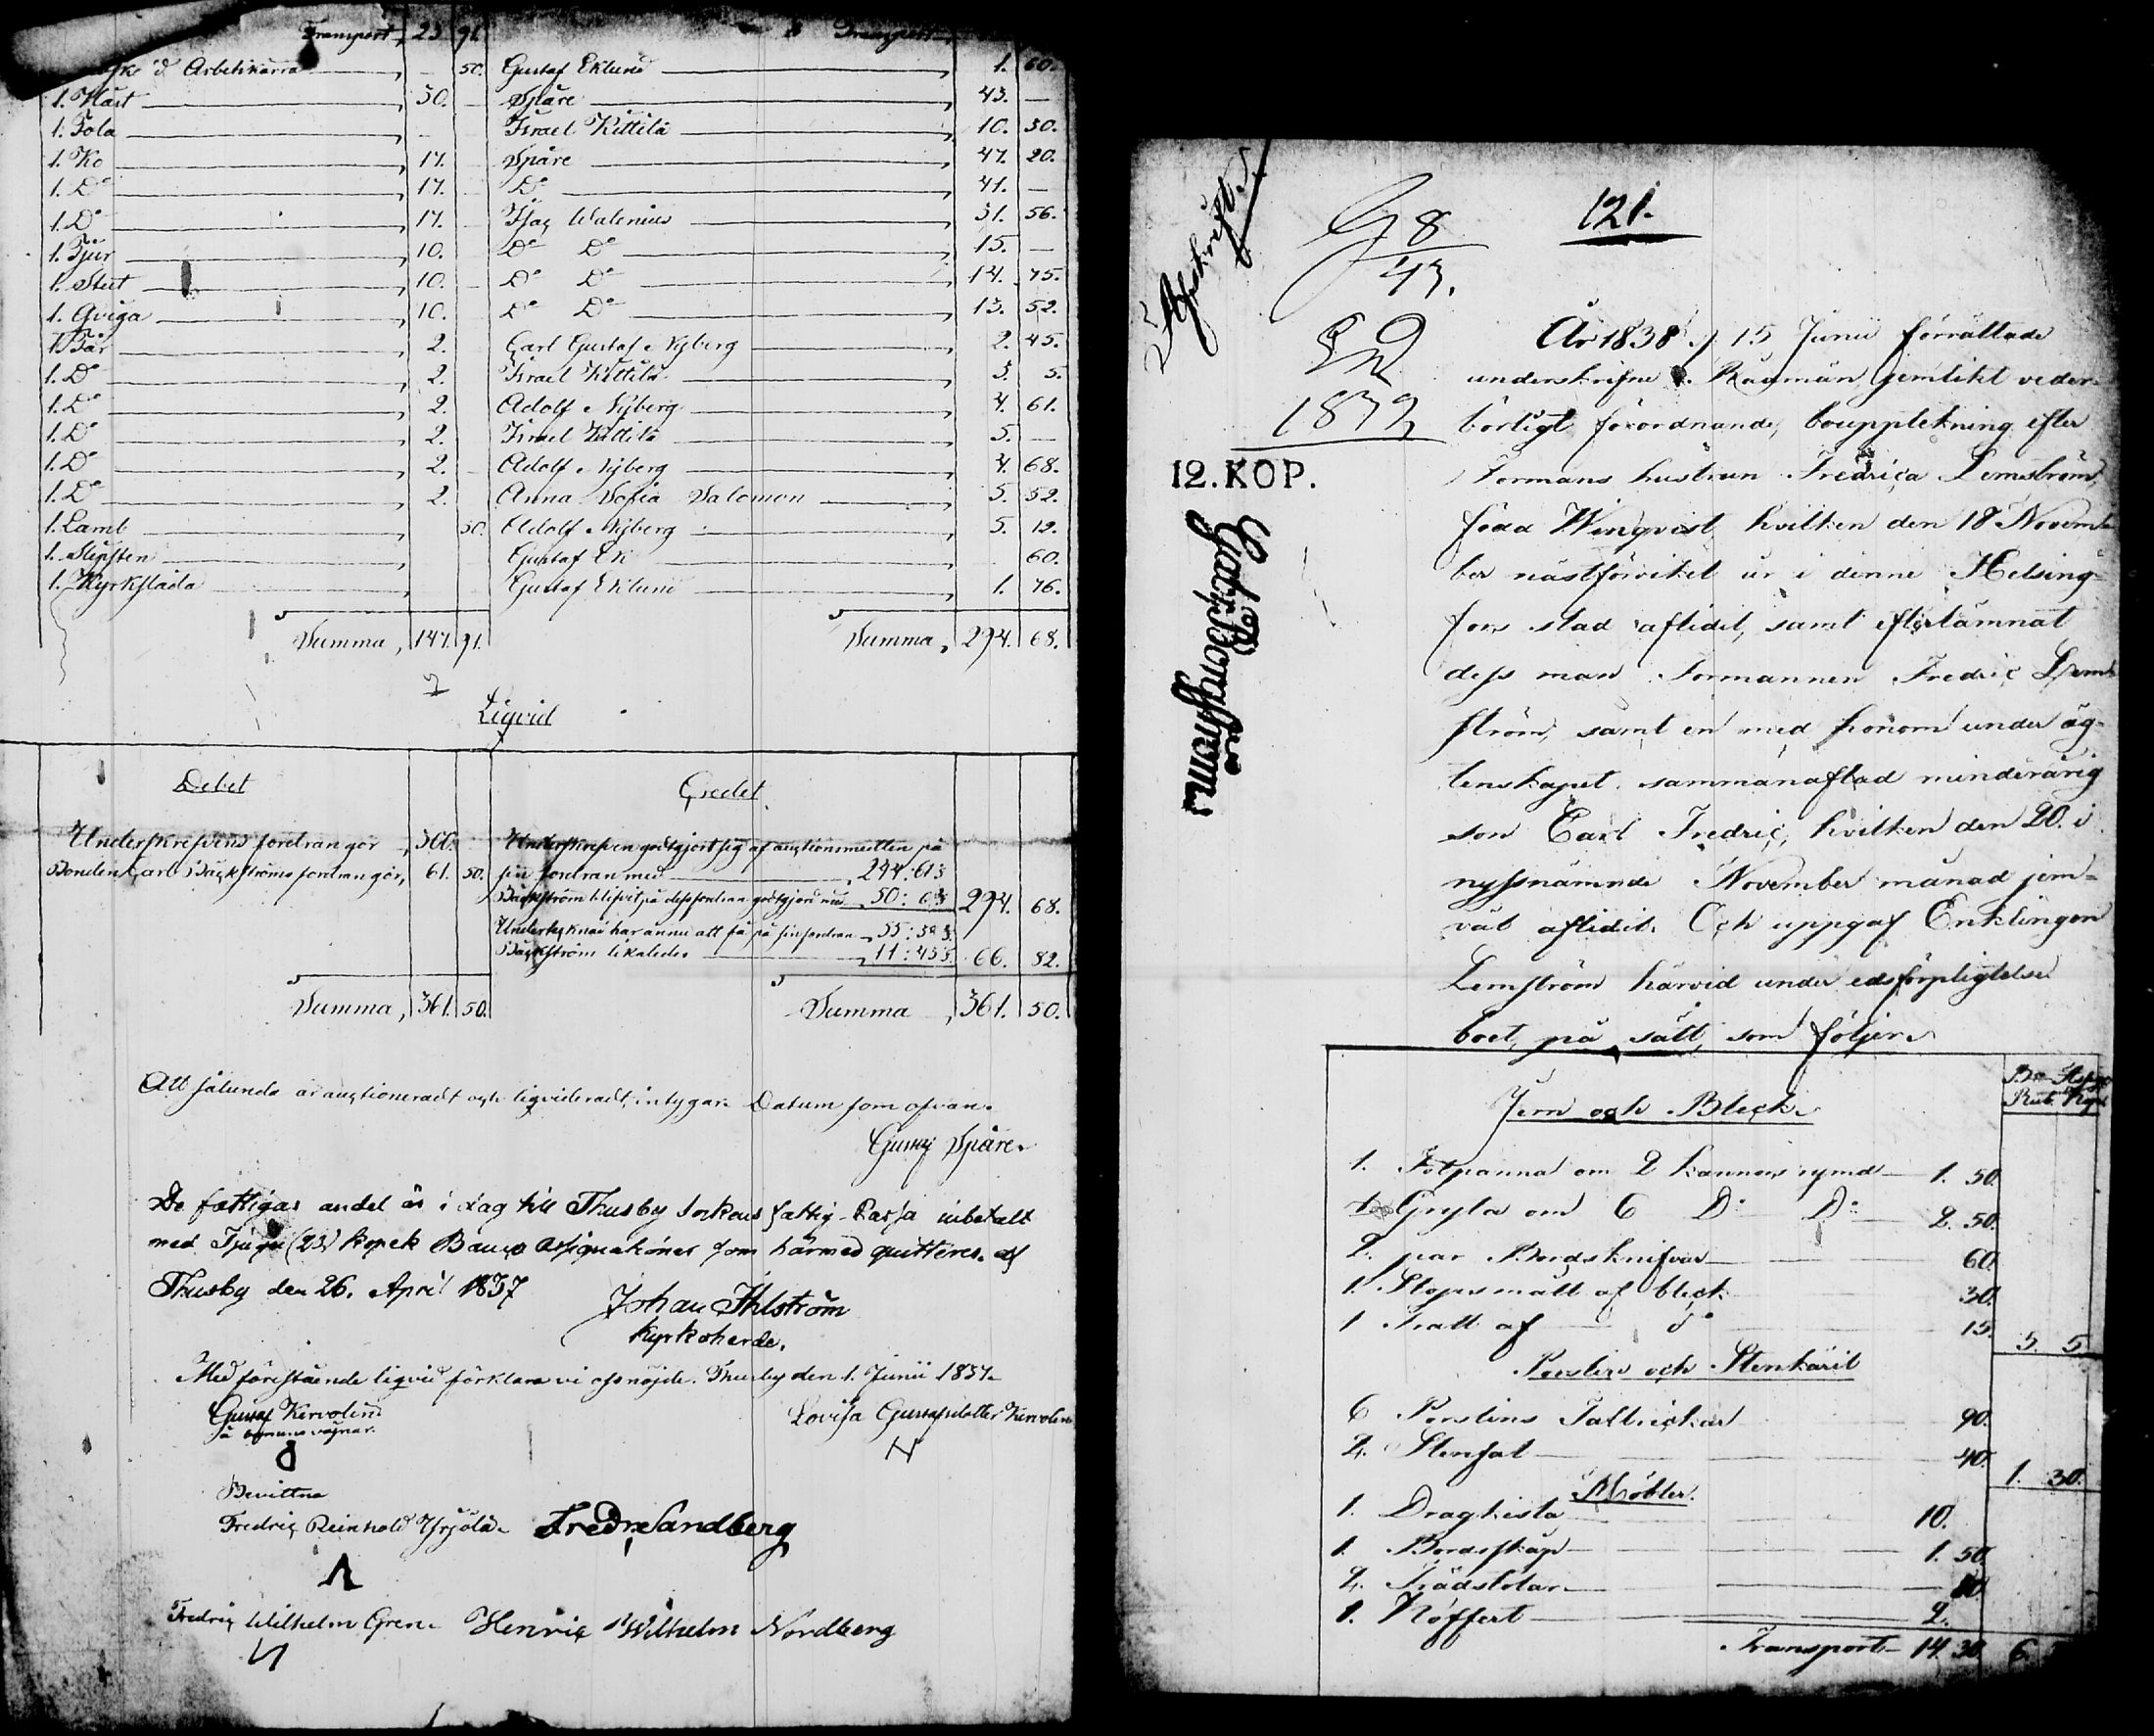 Transport, 23 91. Transport
d:o Arbetskärra , 50. Gustaf Eklund , 1. 60.
1. Häst , 30. Spåre , 43. —
1. Fola , - Israel Kittilä , 10. 30.
1. Ko , 17. Spåre , 47. 20.
1. D:o , 17. D:o , 41. —
1. D:o , 17. Isaç Walenius , 31. 56.
1. Tjur , 10. D:o D:o , 15. —
1. Stut , 10. D:o D:o , 14. 75.
1. Qviga , 10. D:o D:o , 13. 52.
1 Får , 2. Carl Gustaf Nyberg , 2. 45.
1. D:o , 2. Israel Kittilä , 3. 5.
1. D:o , 2. Adolf Nyberg , 4. 61.
1. D:o , 2. Israel Kittilä , 5. —
1. D:o , 2. Adolf Nyberg , 4. 68.
1. D:o , 2. Anna Sofia Salomon , 5. 52.
1. Lamb 50. Adolf Nyberg , 5. 12.
1. Slipsten , Gustaf Ek , 60.
1. Kyrksläda , Gustaf Eklund , 1. 76.
Summa, 147. 91. Summa, 294. 68.
Liqvid
Debet Credet.
Underskrefvens fordran gör , 300. Underskrefven godtgjort sig af auçtionsmedlen på
Bonden Carl Bäckströms fordran gör, 61. 50. sin fordran med , 244: 61 3
Bäckström blifvit på dess fordran godtgjord med 50: 6 3/ 294. 68.
Underteknad har ännu att få på sin fordran , 55: 38 3.
Bäckström likaledes , 11: 43 3. 66. 82.
Summa, 361. 50. Summa , 361. 50.
Att sålunda är auçtioneradt och liqvideradt, intygar. Datum som ofvan.
Gustaf Spåre.
De fattigas andel är i dag till Thusby Sockens fattig-Kassa inbetalt
med Tjugu (23) kopek Banco Assignationer som härmed quitteras. af
Thusby den 26. April 1837
Johan Ahlström
Kyrkoherde.
Med förestående liqvid förklara vi oss nöjde. Thusby den 1. Junii 1837.
Gustaf Kervolin Lovisa Gustafsdotter Kervolin
på omyndiges vägnar.
Bevittna
Fredriç Reinhold Yrjölä. Fredr Sandberg
Fredriç Wilhelm Gren. Henriç Wilhelm Nordberg
Afskrift.
121.
8
43.
1872
12. KOP.
År 1838 d. 15 Junii förrättade
underskrifne Rådman, jemlikt veder-
börligt förordnande, bouppteckning efter
Formans hustrun Fredriça Lemström
född Winqvist, hvilken den 18 Novem-
ber nästförvikit år i denne Helsing-
fors stad aflidit, samt efterlämnat
dess man Formannen Fredriç Lem-
ström, samt en med honom under äg-
tenskapet sammanaflad minderårig
son Carl Fredriç, hvilken den 20. i
nyssnämnde November månad jem-
väl aflidit. Och uppgaf Enklingen
Lemström härvid under edsförpligtelse
boet, på sätt, som följer.
B:o Assign:
Rub. Kop.
Jern och Bleck.
1. Fotpanna om 2 kannors rymd — 1. 50.
1. Gryta om 6 D:o D:o — 2. 50.
2. par Bordsknifvar 60.
1. Stopsmått af bleck 30.
1 Tratt af d:o 15. 5. 5.
Porslin och Stenkäril
6 Porslins Tallrickar 90.
2. Stenfat 40. 1. 30.
Möbler.
1. Dragkista 10.
1. Bordsskåp 1. 50.
2. Trädstolar 80.
1. Koffert 2.
Transport 14. 30 6.